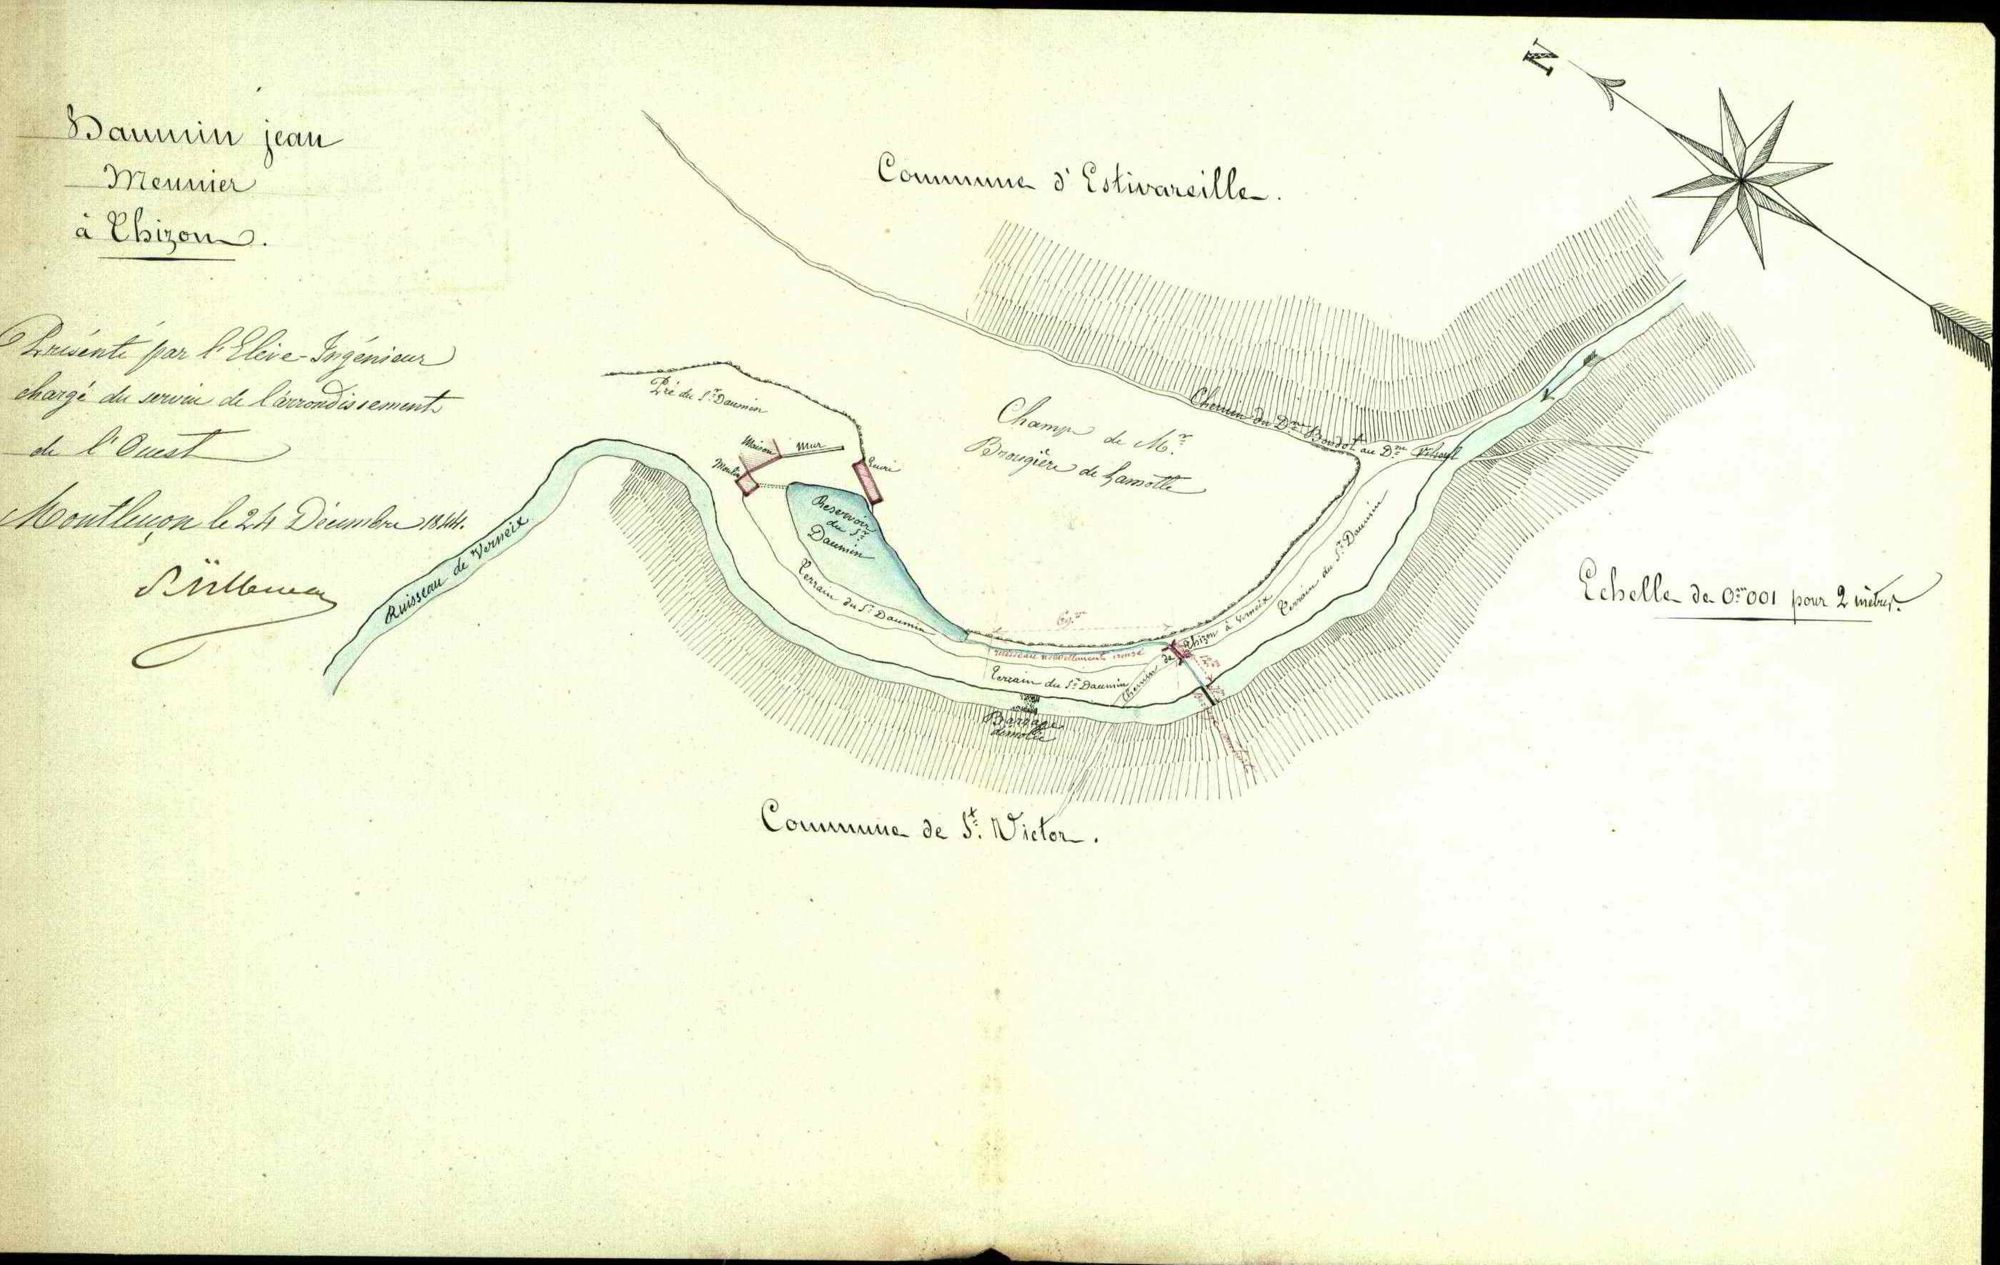 Daumin jean
Meunier
à Thizon.
Présenté par l'Elève-Ingénieur
chargé du service de l'arrondissement
de l'Ouest
Montluçon le 24 Décembre 1844.
N
Commune d'Estivareille.
Pré du Sr. Daumin
Maison
Mur
Moulin
Ecurie
Champ de Mr.
Brougière de Lamotte
Chemin du Dne Boudot au Dne
Reservoir
du Sr.
Daumin
Ruisseau de Verneix
Terrain du Sr. Daumin
Terrain du Sr. Daumin
69m
ruisseau nouvellement creusé
Terrain du Sr. Daumin
Chemin de Thizon à Verneix
Barrage
démolie
Echelle de 0m001 pour 2 mètres.
Commune de St. Victor.